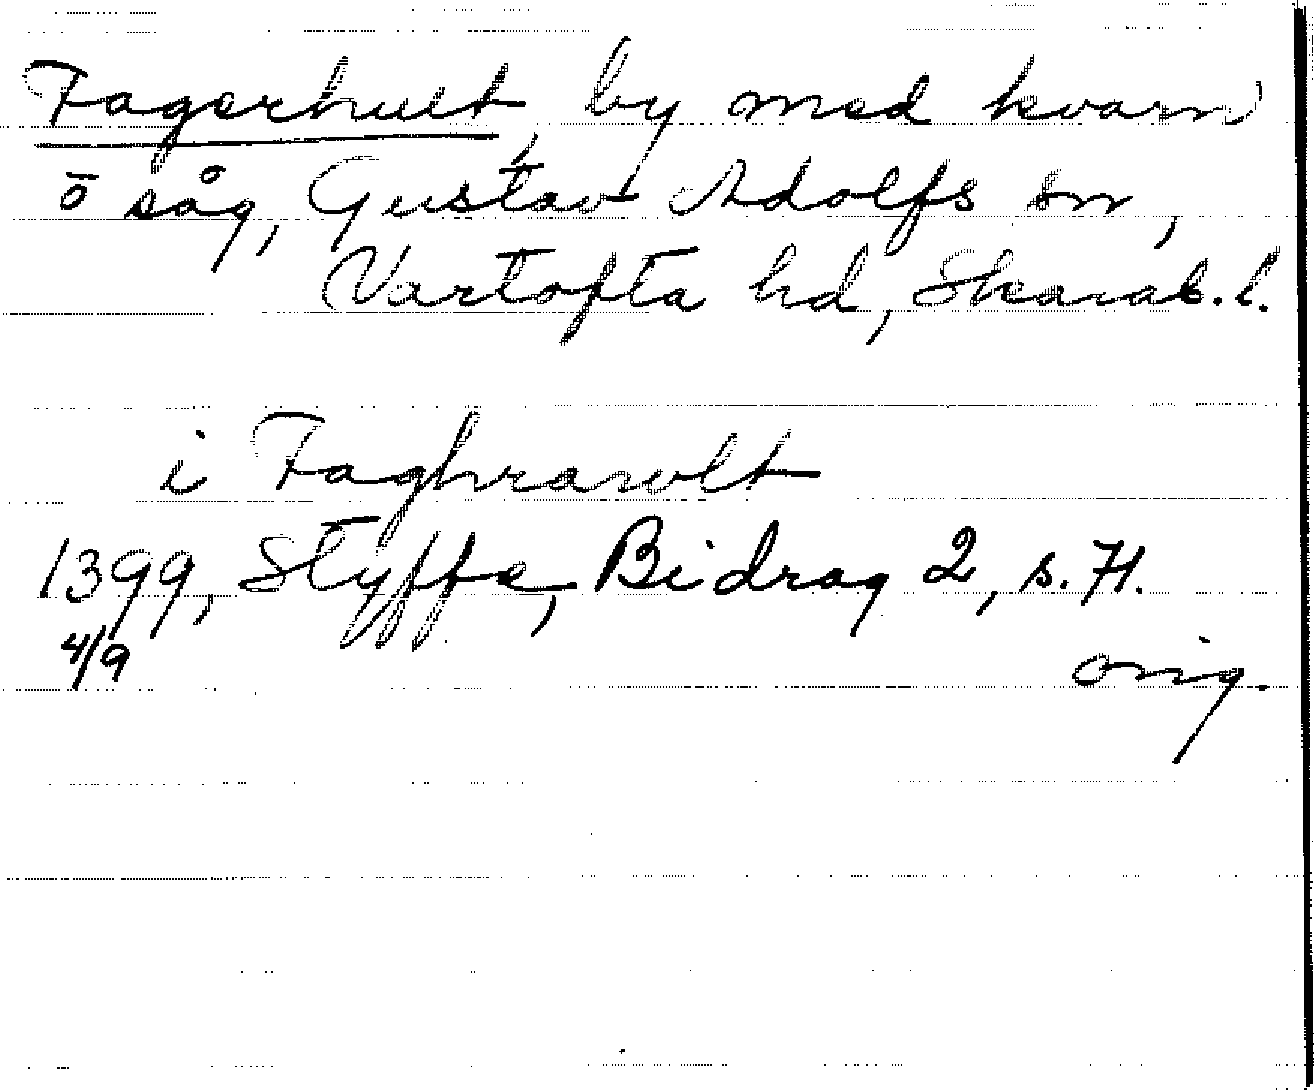 Fagerhult, by med kvarn
o såg, Gustav Adolfs sn,
Vartofta hd, Skarab. l.
i Faghrawlt
1399, Styffe, Bidrag 2, s. 71.
4/9
orig.